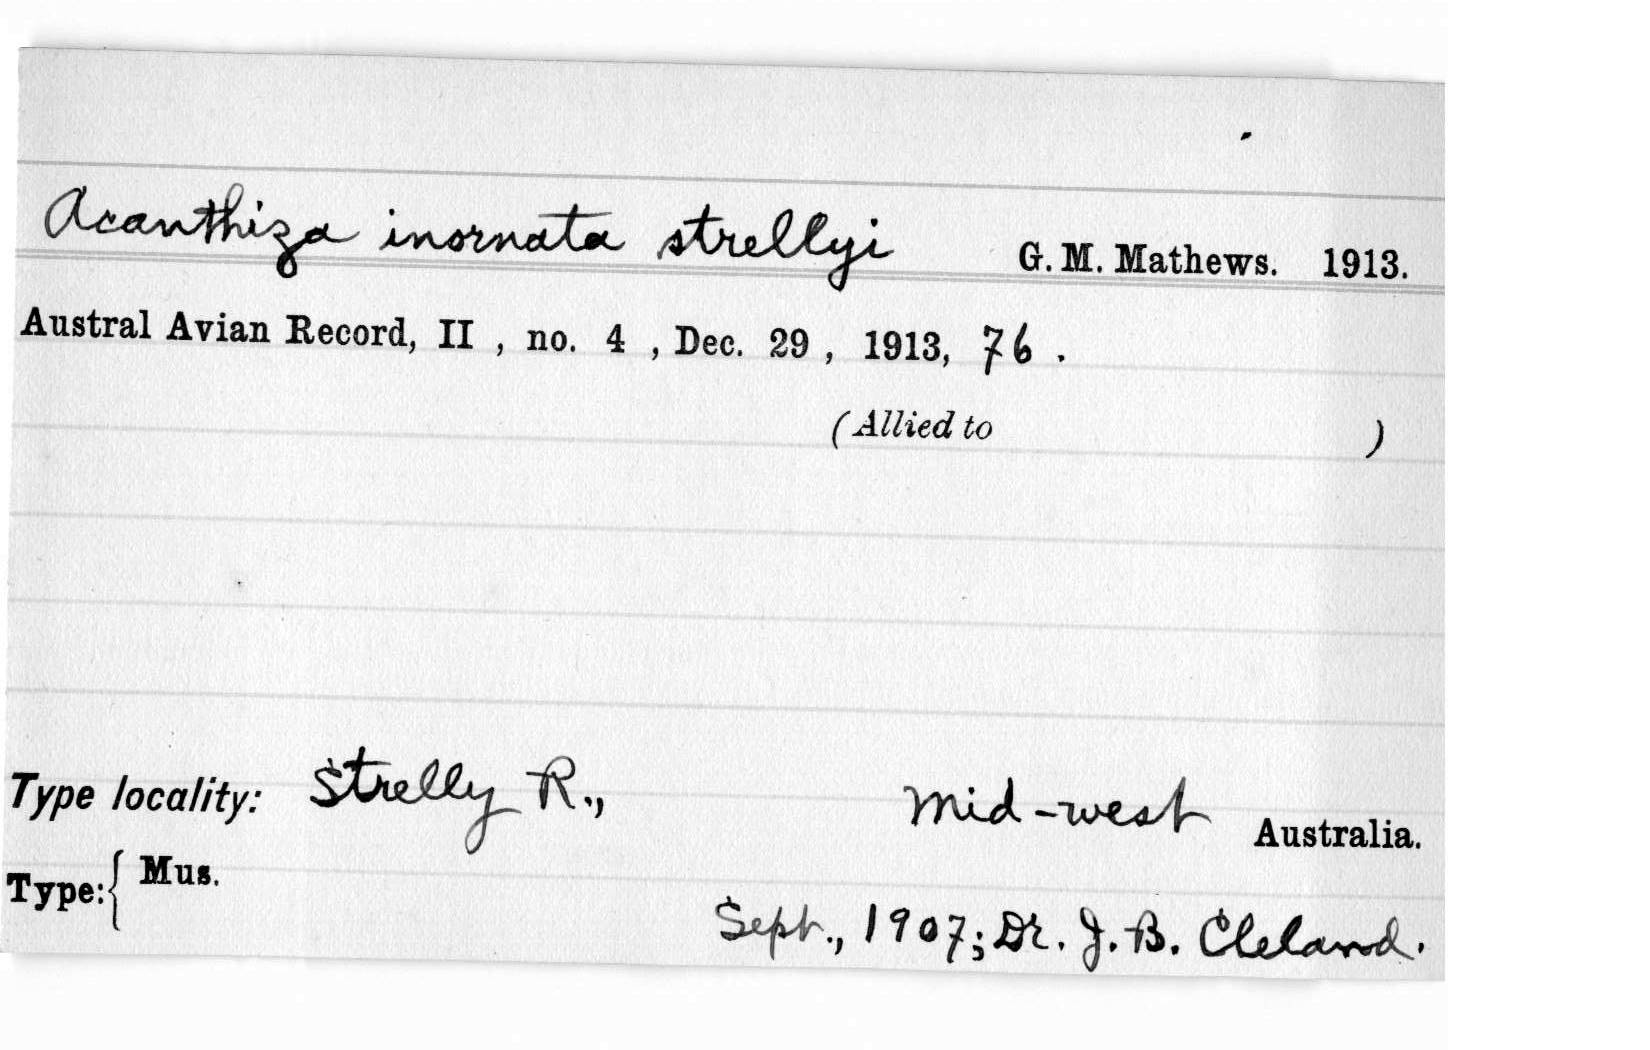 Acanthiza inornata strellyi G. M. Mathews. 1913.
Austral Avian Record, II , no. 4 , Dec. 29 , 1913, 76 .
(Allied to )
Type locality: Strelly R., Mid-west Australia.
Type: { Mus.
Sept., 1907; Dr. J. B. Cleland.